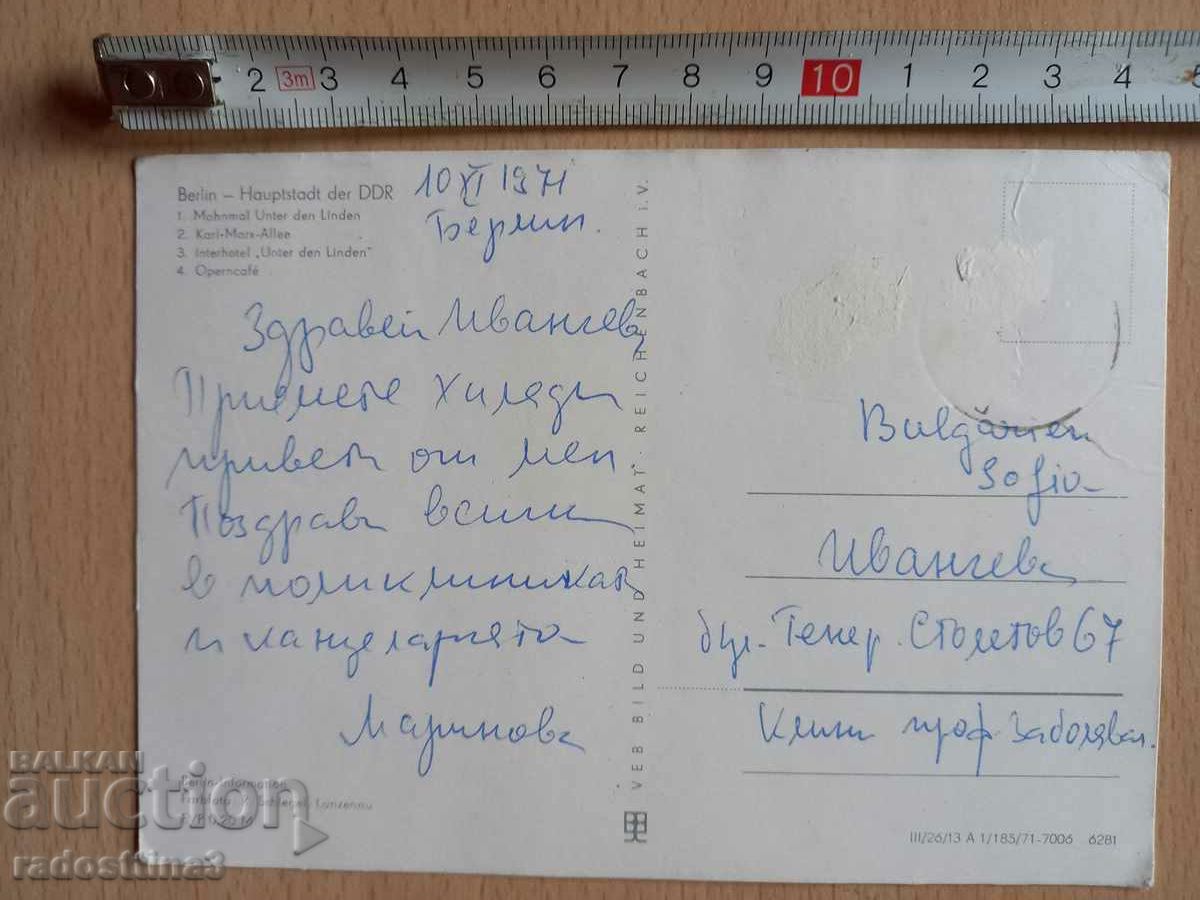 2 3m 3 4 5 6 7 8 9 10 1 2 3 4 5
Berlin – Hauptstadt der DDR
1. Mahnmal Unter den Linden
2. Karl-Marx-Allee
3. Interhotel „Unter den Linden"
4. Operncafé
10 XI 1971
Берлин.
Здравей Иванчева
Приемете хиляди
привет от мен
Поздрави всички
в поликлиниката
и канцеларията
Маринова
Berlin-Information
Farbfoto: Schlegel, Lanzenau
0,20 M
VEB BILD UND HEIMAT · REICHENBACH i. V.
Bulgarien
Sofia
Иванчева
бул. Генер. Столетов 67
Клин проф. Заболяван.
III/26/13 A 1/185/71-7006 6281
BALKAN
auction
radosttina3